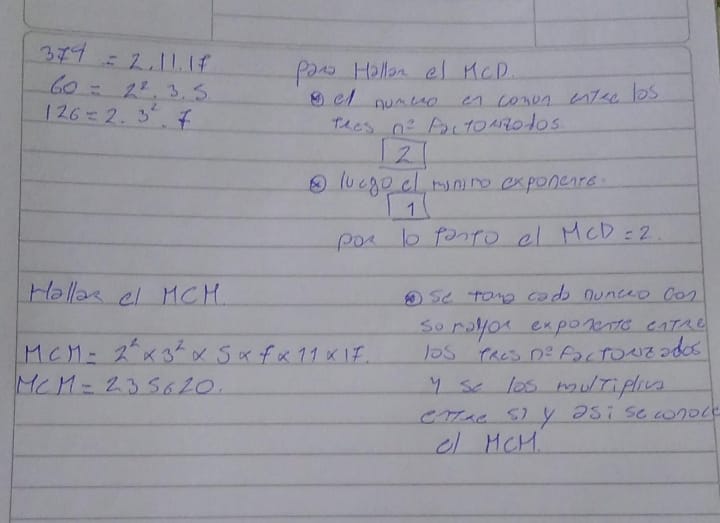 374 = 2.11.17
60 = 2². 3. 5
126 = 2. 3². 7
para Hallar el MCD.
el numero en comun entre los
tres nº factorizados
2
luego el minimo exponente.
1
por lo tanto el MCD = 2.
Hallar el MCM
MCM = 2² x 3² x 5 x 7 x 11 x 17.
MCM = 235620.
se toma cada numero con
su mayor exponente entre
los tres nº factorizados
y se los multiplica
entre si y asi se conoce
el MCM.